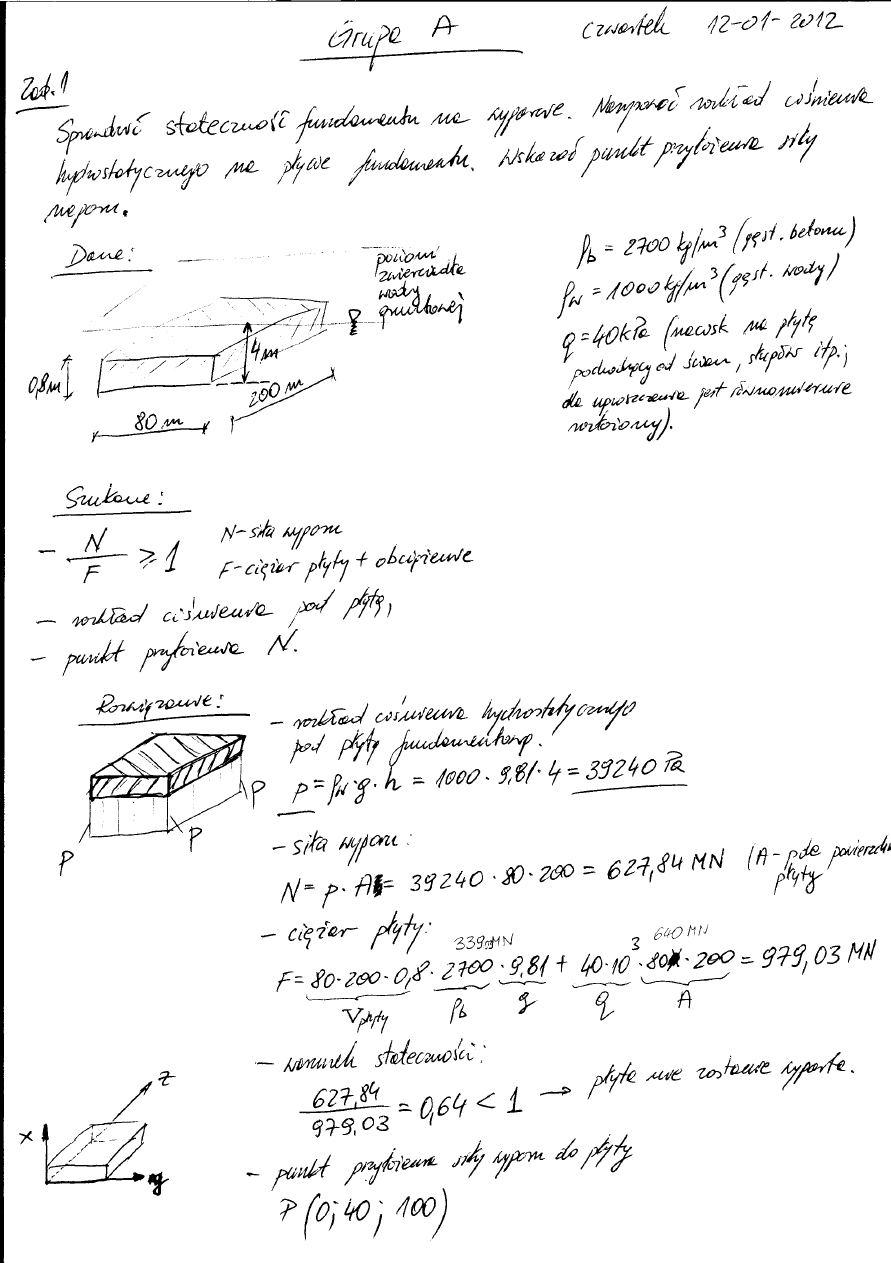 Grupa A czwartek 12-01-2012
Zad.1
Sprawdzić stateczność fundamentu na wyparcie. Narysować rozkład ciśnienia
hydrostatycznego na płycie fundamentu. Wskazać punkt przyłożenia siły
naporu.
Dane:
poziom
zwierciadła
wody
gruntowej
4m
0,8m
200 m
80 m
ρb = 2700 kg/m³ (gęst. betonu)
ρw = 1000 kg/m³ (gęst. wody)
q = 40kPa (nacisk na płytę
pochodzący od ścian, słupów itp.;
dla uproszczenia jest równomiernie
rozłożony).
Szukane:
- N/F ≥ 1 N-siła wyporu
F-ciężar płyty + obciążenie
- rozkład ciśnienia pod płytą,
- punkt przyłożenia N.
Rozwiązanie:
- rozkład ciśnienia hydrostatycznego
pod płytą fundamentową.
p = ρw·g·h = 1000·9,81·4 = 39240 Pa
P P P
- siła wyporu:
N = p·A = 39240·80·200 = 627,84 MN (A - pole powierzchni
płyty
- ciężar płyty:
339 MN 640 MN
F = 80·200·0,8·2700·9,81 + 40·10³·80·200 = 979,03 MN
Vpłyty ρb g q A
- warunek stateczności:
627,84/979,03 = 0,64 < 1 → płyta nie zostanie wyparta.
x y z
- punkt przyłożenia siły wyporu do płyty
P (0; 40; 100)